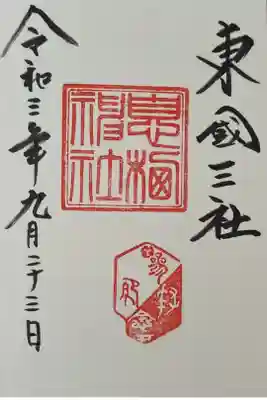 東國三社
息栖
神社
令和三年九月二十三日